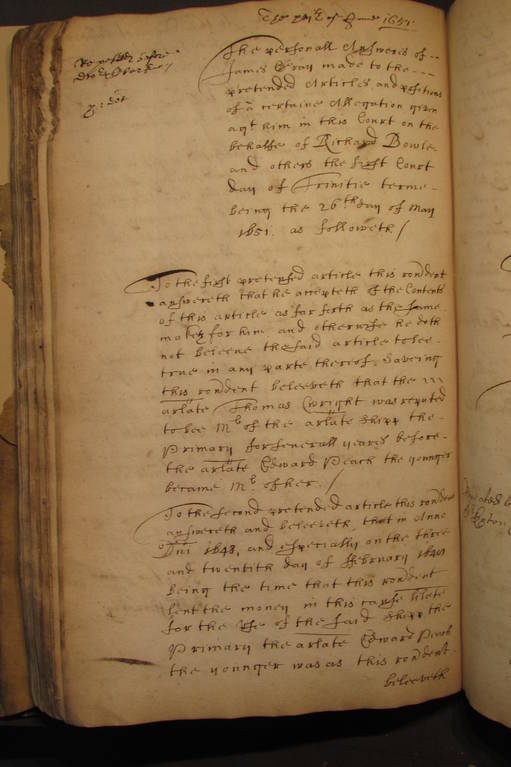 The xviith of June 1651.
Repetitus before
The personall Answeris of
James Gray made to the
pretended Articles and positions
of a certaine Allegation given
agt him in this Court on the
behalfe of Richard Dowle
and others the first Court
day of Trinitie terme
being the 26th day of May
1651. as followeth /
To the first pretensed article this rondent
answereth that he accepteth of the Contents
of this article as far forth as the same
maketh for him and otherwise he doth
not beleeve the said article to bee
true in any parte thereof. Saveing
this rondent beleeveth that the
arlate Thomas Wright was reputed
to bee Mr of the arlate shipp the
Primary for severall yeares before
the arlate Edward Peach the younger
became Mr of her. /
To the second pretended article this rondent
answereth and beleeveth, that in Anno
Dni 1648, and especially on the three
and twentith day of ffebruary 1648
being the time that this rondent
lent the money in this cause
for the use of the said shipp the
Primary the arlate Edward Peach
the younger was as this rondent
beleeveth